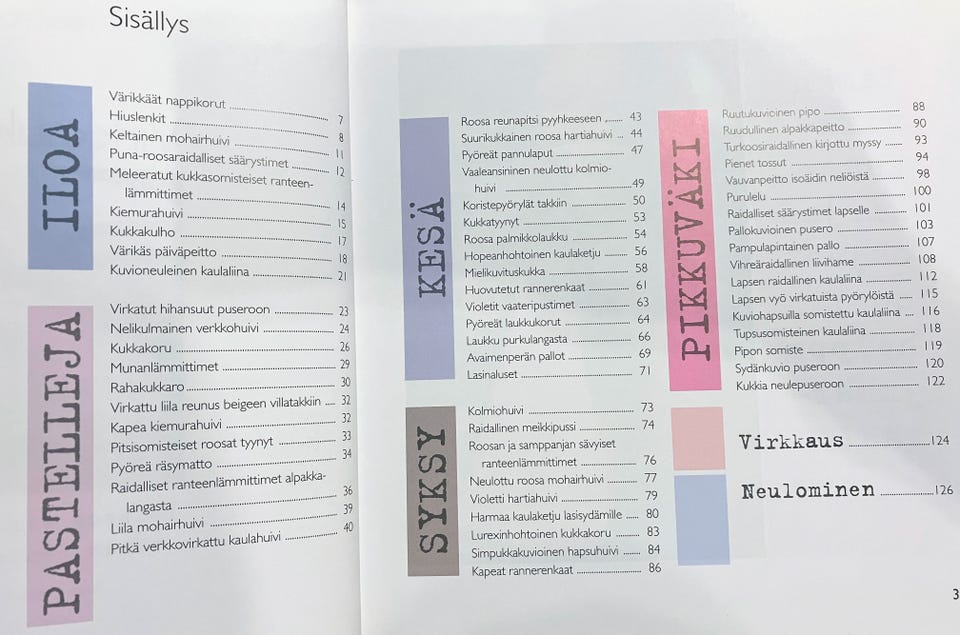 Sisällys
ILOA
Värikkäät nappikorut 7
Hiuslenkit 8
Keltainen mohairhuivi 11
Puna-roosaraidalliset säärystimet 12
Meleeratut kukkasomisteiset ranteen-
lämmittimet 14
Kiemurahuivi 15
Kukkakulho 17
Värikäs päiväpeitto 18
Kuvioneuleinen kaulaliina 21
PASTELLEJA
Virkatut hihansuut puseroon 23
Nelikulmainen verkkohuivi 24
Kukkakoru 26
Munanlämmittimet 29
Rahakukkaro 30
Virkattu liila reunus beigeen villatakkiin 32
Kapea kiemurahuivi 32
Pitsisomisteiset roosat tyynyt 33
Pyöreä räsymatto 34
Raidalliset ranteenlämmittimet alpakka-
langasta 36
Liila mohairhuivi 39
Pitkä verkkovirkattu kaulahuivi 40
KESÄ
Roosa reunapitsi pyyhkeeseen 43
Suurikukkainen roosa hartiahuivi 44
Pyöreät pannulaput 47
Vaaleansininen neulottu kolmio-
huivi 49
Koristepyörylät takkiin 50
Kukkatyynyt 53
Roosa palmikkolaukku 54
Hopeanhohtoinen kaulaketju 56
Mielikuvituskukka 58
Huovutetut rannerenkaat 61
Violetit vaateripustimet 63
Pyöreät laukkukorut 64
Laukku purkulangasta 66
Avaimenperän pallot 69
Lasinaluset 71
SYKSY
Kolmiohuivi 73
Raidallinen meikkipussi 74
Roosan ja samppanjan sävyiset
ranteenlämmittimet 76
Neulottu roosa mohairhuivi 77
Violetti hartiahuivi 79
Harmaa kaulaketju lasisydämille 80
Lurexinhohtoinen kukkakoru 83
Simpukkakuvioinen hapsuhuivi 84
Kapeat rannerenkaat 86
PIKKUVÄKI
Ruutukuvioinen pipo 88
Ruudullinen alpakkapeitto 90
Turkoosiraidallinen kirjottu myssy 93
Pienet tossut 94
Vauvanpeitto isoäidin neliöistä 98
Purulelu 100
Raidalliset säärystimet lapselle 101
Pallokuvioinen pusero 103
Pampulapintainen pallo 107
Vihreäraidallinen liivihame 108
Lapsen raidallinen kaulaliina 112
Lapsen vyö virkatuista pyörylöistä 115
Kuviohapsuilla somistettu kaulaliina 116
Tupsusomisteinen kaulaliina 118
Pipon somiste 119
Sydänkuvio puseroon 120
Kukkia neulepuseroon 122
Virkkaus 124
Neulominen 126
3